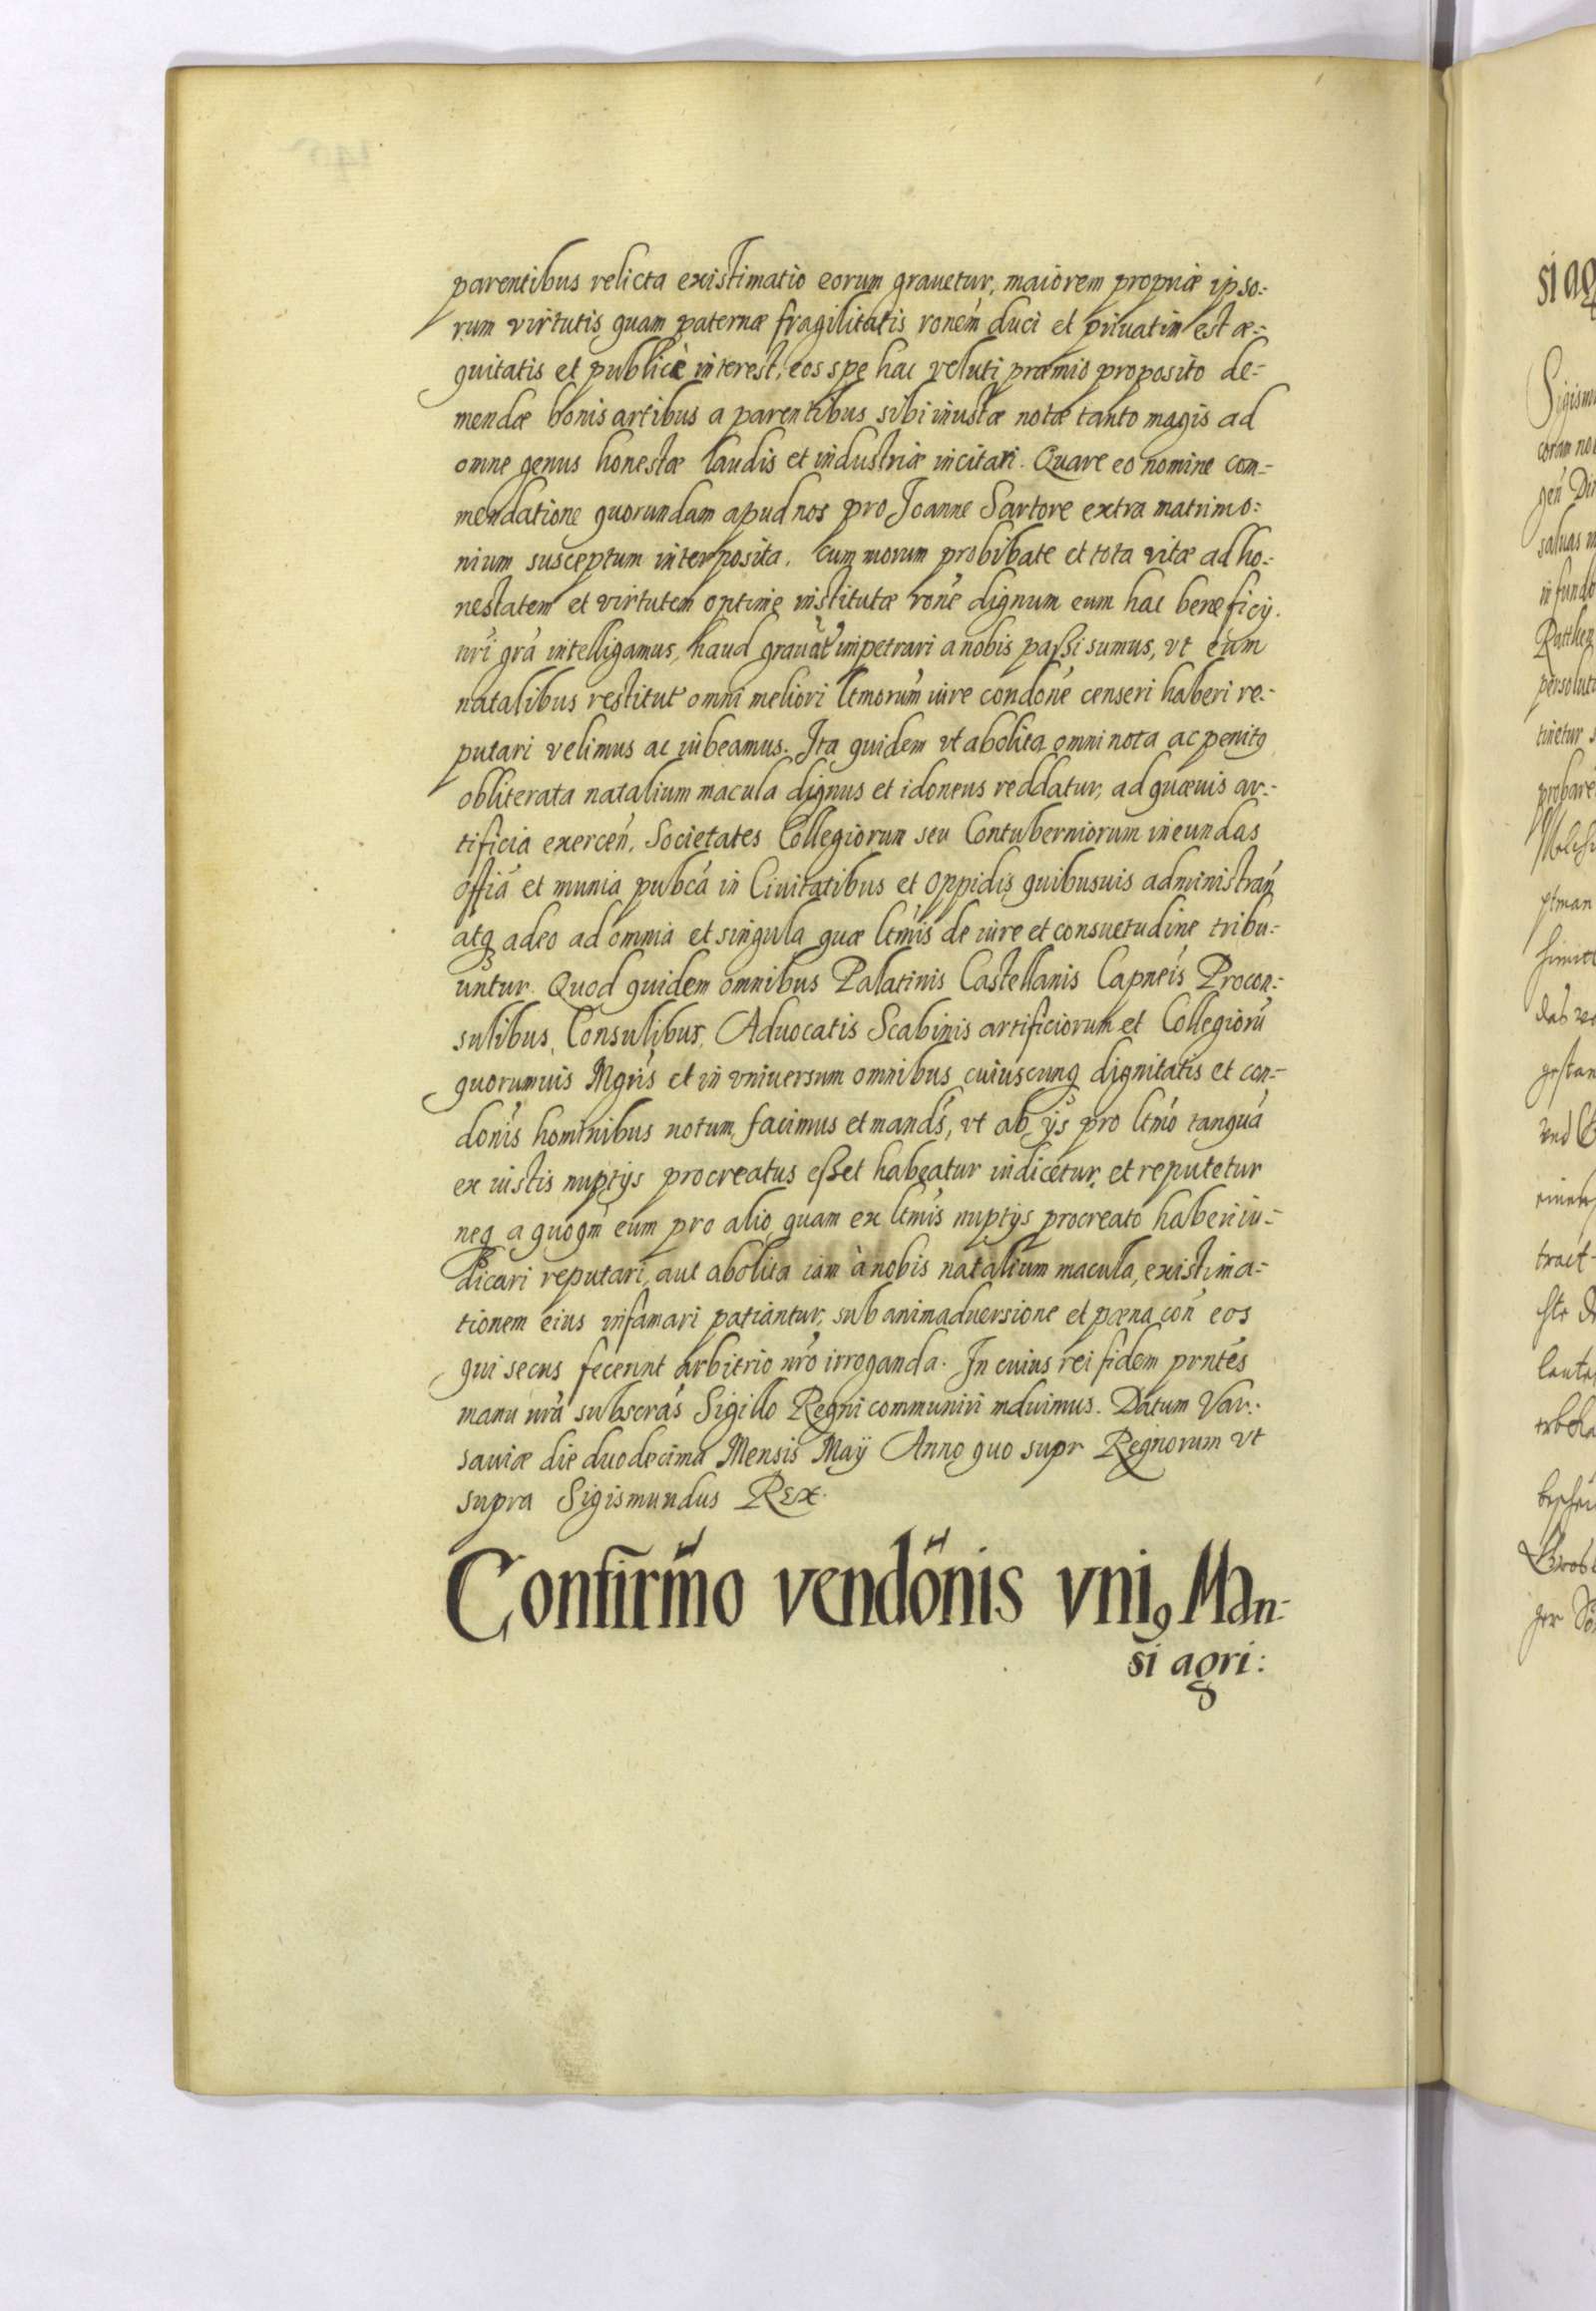 parentibus relicta existimatio eorum grauetur, maiorem propriæ ipso:
rum virtutis quam paternæ fragilitatis ronem̄ duci et priuatim est æ:
quitatis et publicè interest, eos spe hac veluti præmio proposito de:
mendæ bonis artibus a parentibus sibi inustæ notæ tanto magis ad
omne genus honestæ laudis et industriæ incitari. Quare eo nomine com:
mendatione quorundam apud nos pro Joanne Sartore extra matrimo:
nium susceptum interposita, cum morum probibate et tota vitæ ad ho:
nestatem et virtutem optime institutæ rone̅ dignum eum hac beneficij
nri̅ gra̅ intelligamus, haud grauat̅ impetrari a nobis paßi sumus, vt eum
natalibus restitut̅ omni meliori ltmorum̅ iure condone̅ censeri haberi re:
putari velimus ac iubeamus. Ita quidem vt abolita omni nota ac penitꝰ
obliterata natalium macula dignus et idoneus reddatur, ad quæuis ar:
tificia exercen̅, Societates Collegiorum seu Contuberniorum ineundas
offia̅ et munia pubca̅ in Ciuitatibus et oppidis quibusuis administran̅
atq̨ adeo ad omnia et singula quæ ltmis̅ de iure et consuetudine tribu:
untur. Quod quidem omnibus Palatinis Castellanis Capneis̅ Procon:
sulibus, Consulibus, Aduocatis Scabinis artificiorum et Collegioru̅
quorumuis Mgris̅ et in vniuersum omnibus cuiuscunq̨ dignitatis et con:
donis̅ hominibus notum facimus et mands̅, vt ab ijs pro ltmo̅ tanqua̅
ex iustis nuptijs procreatus eßet habeatur iudicetur, et reputetur
neq̨ a quoqm̅ eum pro alio quam ex ltmis̅ nuptijs procreato haberi iu:
dicari reputari, aut abolita iam à nobis natalium macula, existima:
tionem eius infamari patiantur, sub animaduersione et pæna con̅ eos
qui secus fecerint arbitrio nro̅ irroganda. In cuius rei fidem prntes̅
manu nra̅ subscras̅ Sigillo Regni communiri mduimus. Datum Var:
sauiæ die duodecima Mensis Maÿ Anno quo supr Regnorum vt
supra Sigismundus Rex.
Confirm̅o vendo̅nis vniꝰ Man:
si agri: